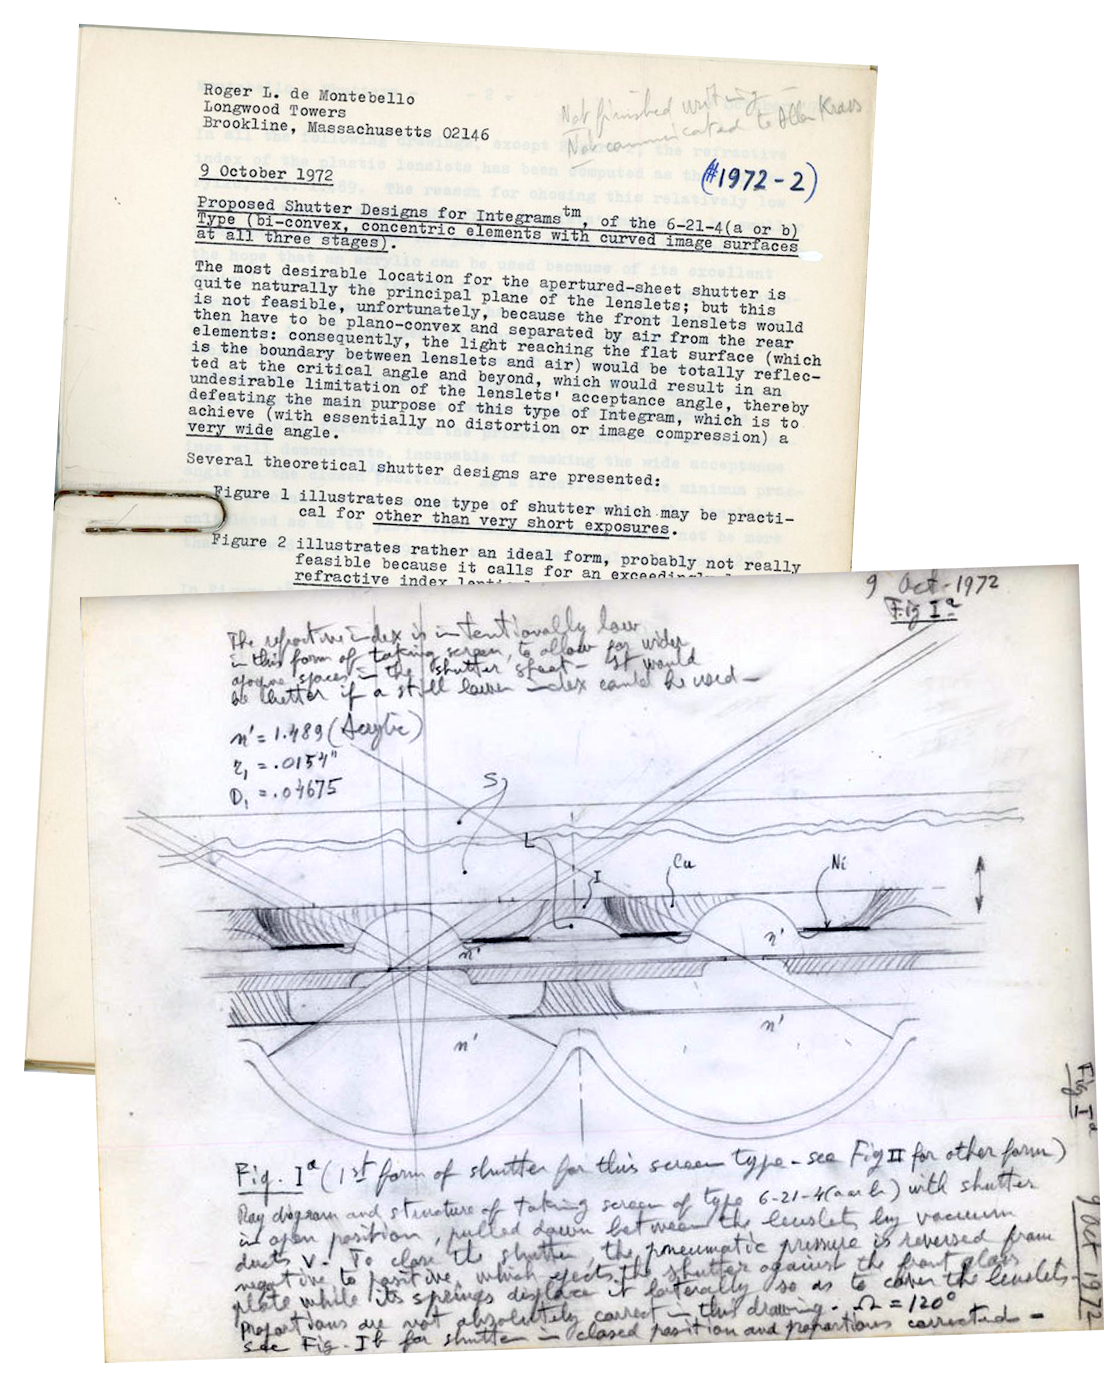 Roger L. de Montebello
Longwood Towers
Brookline, Massachusetts 02146
Not finished writing -
Not communicated to Allen Krass
9 October 1972
(#1972-2)
Proposed Shutter Designs for Integrams™, of the 6-21-4(a or b)
Type (bi-convex, concentric elements with curved image surfaces
at all three stages).
The most desirable location for the apertured-sheet shutter is
quite naturally the principal plane of the lenslets; but this
is not feasible, unfortunately, because the front lenslets would
then have to be plano-convex and separated by air from the rear
elements: consequently, the light reaching the flat surface (which
is the boundary between lenslets and air) would be totally reflec-
ted at the critical angle and beyond, which would result in an
undesirable limitation of the lenslets' acceptance angle, thereby
defeating the main purpose of this type of Integram, which is to
achieve (with essentially no distortion or image compression) a
very wide angle.
Several theoretical shutter designs are presented:
Figure 1 illustrates one type of shutter which may be practi-
cal for other than very short exposures.
Figure 2 illustrates rather an ideal form, probably not really
feasible because it calls for an exceedingly
refractive index
9 Oct-1972
Fig Iª
The refractive index is intentionally low
in this form of taking screen, to allow for wider
opaque spaces in the shutter sheet - It would
be better if a still lower index could be used -
n' = 1.489 (Acrylic)
r₁ = .0154"
D₁ = .04675
S
L
I
Cu
Ni
n'
n'
n'
n'
Fig. Iª (1st form of shutter for this screen type - see Fig II for other form)
Ray diagram and structure of taking screen of type 6-21-4(a or b) with shutter
in open position, pulled down between the lenslets by vacuum
ducts V. To close the shutter, the pneumatic pressure is reversed from
negative to positive, which ejects the shutter against the front glass
plate while its springs displace it laterally so as to cover the lenslets -
Proportions are not absolutely correct in this drawing. Ω = 120°
see Fig. Ib for shutter in closed position and proportions corrected -
Fig Iª
9 Oct 1972